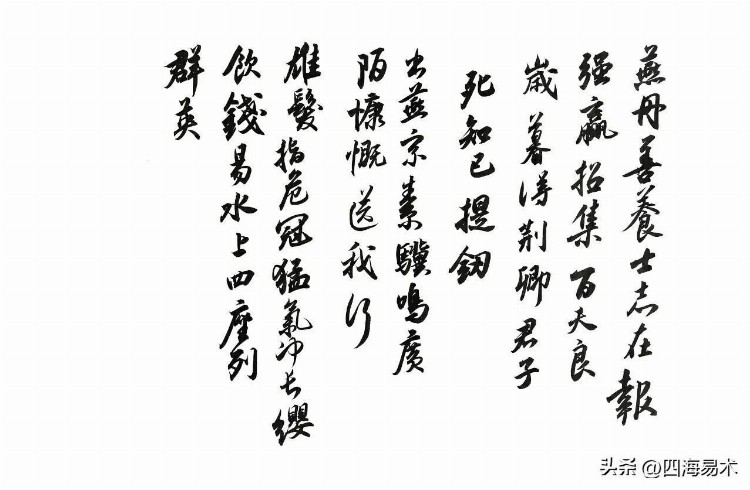 燕丹善養士志在報
强嬴招集百夫良
歲暮得荆卿君子
死知已提釼
出燕京素驥鳴廣
陌慷慨送我行
雄髮指危冠猛氣冲長纓
飲錢易水上四座列
群英
头条 @四海易术